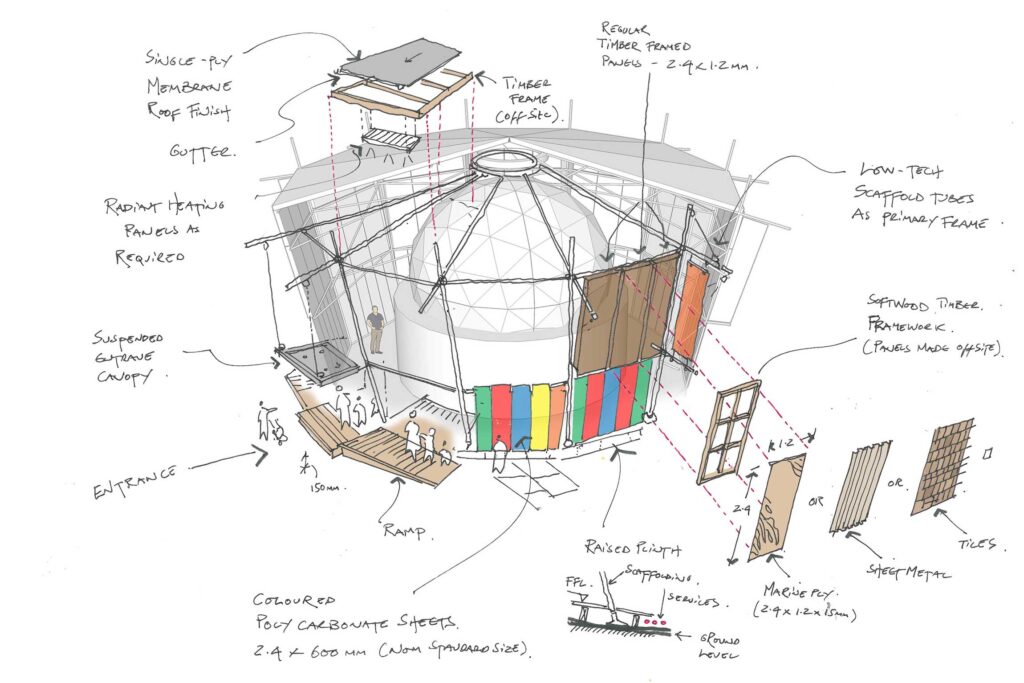 SINGLE-PLY
MEMBRANE
ROOF FINISH
GUTTER.
RADIANT HEATING
PANELS AS
REQUIRED
SUSPENDED
ENTRANE
CANOPY.
ENTRANCE
150MM.
RAMP.
TIMBER
FRAME
(OFFSITE).
REGULAR
TIMBER FRAMED
PANELS - 2.4 x 1.2 MM.
LOW-TECH
SCAFFOLD TUBES
AS PRIMARY FRAME.
SOFTWOOD TIMBER.
FRAMEWORK.
(PANELS MADE OFFSITE).
1.2
2.4
OR
OR.
TILES.
SHEET METAL
MARINE PLY.
(2.4 x 1.2 x 15mm)
RAISED PLINTH
SCAFFOLDING.
FFL.
SERVICES.
GROUND
LEVEL
COLOURED
POLYCARBONATE SHEETS.
2.4 x 600 MM (NOM STANDARD SIZE).